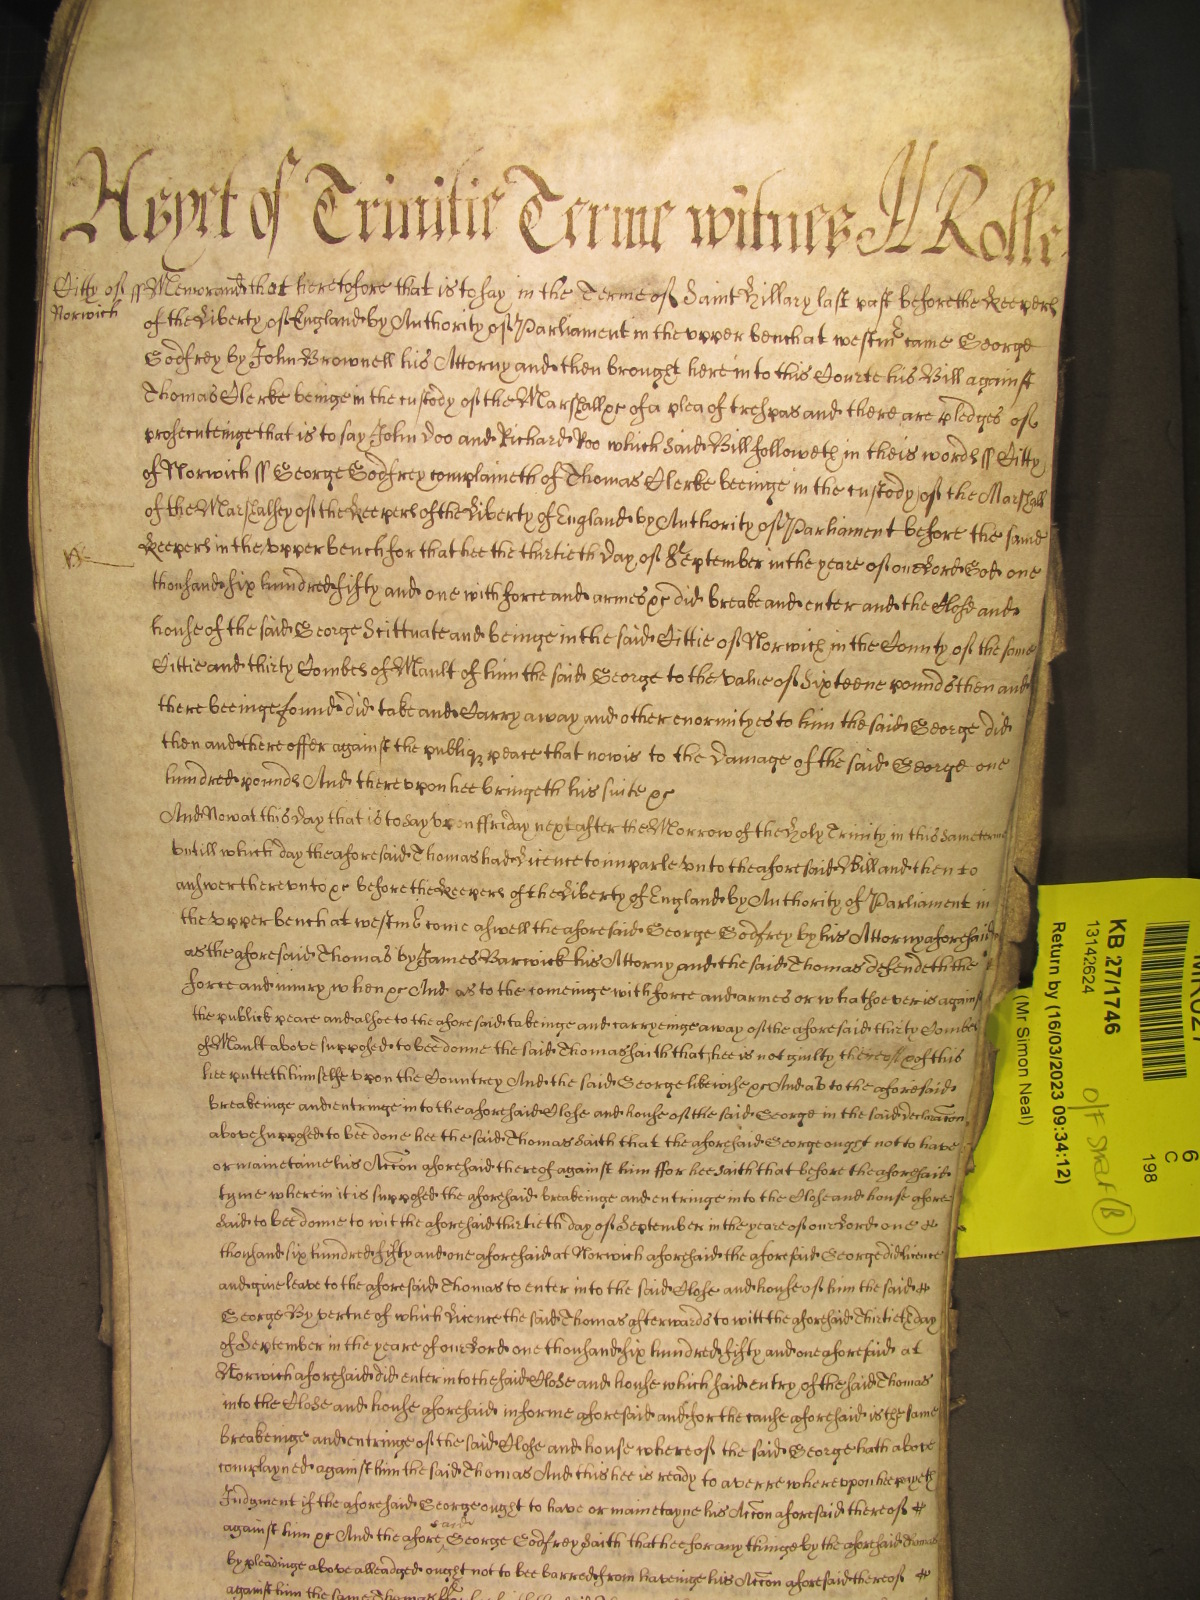 As yet of Trinitie Terme witnes H Rolle
Citty of ss Memorand that heretofore that is to say in the Terme of Saint Hillary last past before the Keepers
Norwich
of the Liberty of England by Authority of Parliament in the upper bench at westmr came George
Godfrey by John Brownell his Attorny and then brought here into this Courte his Bill against
Thomas Clerke beinge in the custody of the Marshall &c of a plea of trespas and there are pledges of
prosecuteinge that is to say John Doo and Richard Roo which said Bill followeth in theis words ss Citty
of Norwich ss George Godfrey complaineth of Thomas Clerke beeinge in the custody of the Marshall
of the Marshalsey of the Keepers of the Liberty of England by Authority of Parliament before the same
Keepers in the upper bench for that hee the thirtieth day of September in the yeare of our Lord God one
thousand six hundred fifty and one with force and armes &c did breake and enter and the Close and
house of the said George Scittuate and beinge in the said Cittie of Norwich in the County of the same
Cittie and thirty Combes of Mault of him the said George to the value of Sixteene pounds then and
there beeinge found did take and Carry away and other enormityes to him the said George did
then and there offer against the publiq peace that now is to the damage of the said George one
hundred pounds And thereupon hee bringeth his suite &c
And Now at this day that is to say upon ffriday next after the Morrow of the Holy Trinity in this same terme
untill which day the aforesaid Thomas had Licence to imparle unto the aforesaid Bill and then to
answer thereunto &c before the Keepers of the Liberty of England by Authority of Parliament in
the upper bench at westmr come aswell the aforesaid George Godfrey by his Attorny aforesaid
as the aforesaid Thomas by James Barwick his Attorny and the said Thomas defendeth the
force and iniury when &c And as to the comeinge with force and armes or whatsoever is against
the publick peace and alsoe to the aforesaid takeinge and carryeinge away of the aforesaid thirty Combes
of Mault above supposed to bee donne the said Thomas saith that hee is not guilty thereof & of this
hee putteth himselfe upon the Countrey And the said George likewise &c And as to the aforesaid
breakeinge and entringe into the aforesaid Close and house of the said George in the said declaracon
above supposed to bee done hee the said Thomas saith that the aforesaid George ought not to have
or mainetaine his Accon aforesaid thereof against him ffor hee saith that before the aforesaid
tyme wherein it is supposed the aforesaid breakeinge and entringe into the Close and house afore
said to bee donne to wit the aforesaid thirtieth day of September in the yeare of our Lord one
thousand six hundred fifty and one aforesaid at Norwich aforesaid the aforesaid George did licence
and give leave to the aforesaid Thomas to enter into the said Close and house of him the said
George By vertue of which Licence the said Thomas afterwards to witt the aforesaid Thirtieth day
of September in the yeare of our Lord one thousand six hundred fifty and one aforesaid at
Norwich aforesaid did enter into the said Close and house which said entry of the said Thomas
into the Close and house aforesaid in forme aforesaid and for the cause aforesaid is the same
breakeinge and entringe of the said Close and house whereof the said George hath above
complayned against him the said Thomas And this hee is ready to averre whereupon hee prayeth
Judgment if the aforesaid George ought to have or mainetayne his Accon aforesaid thereof
against him &c And the afore said George Godfrey saith that hee for any thinge by the aforesaid Thomas
by pleadinge above alleadged ought not to bee barred from haveinge his Accon aforesaid thereof
against him the same Thomas
KB 27/1746
13142624
Return by (16/03/2023 09:34:12)
(Mr Simon Neal)
6
C
198